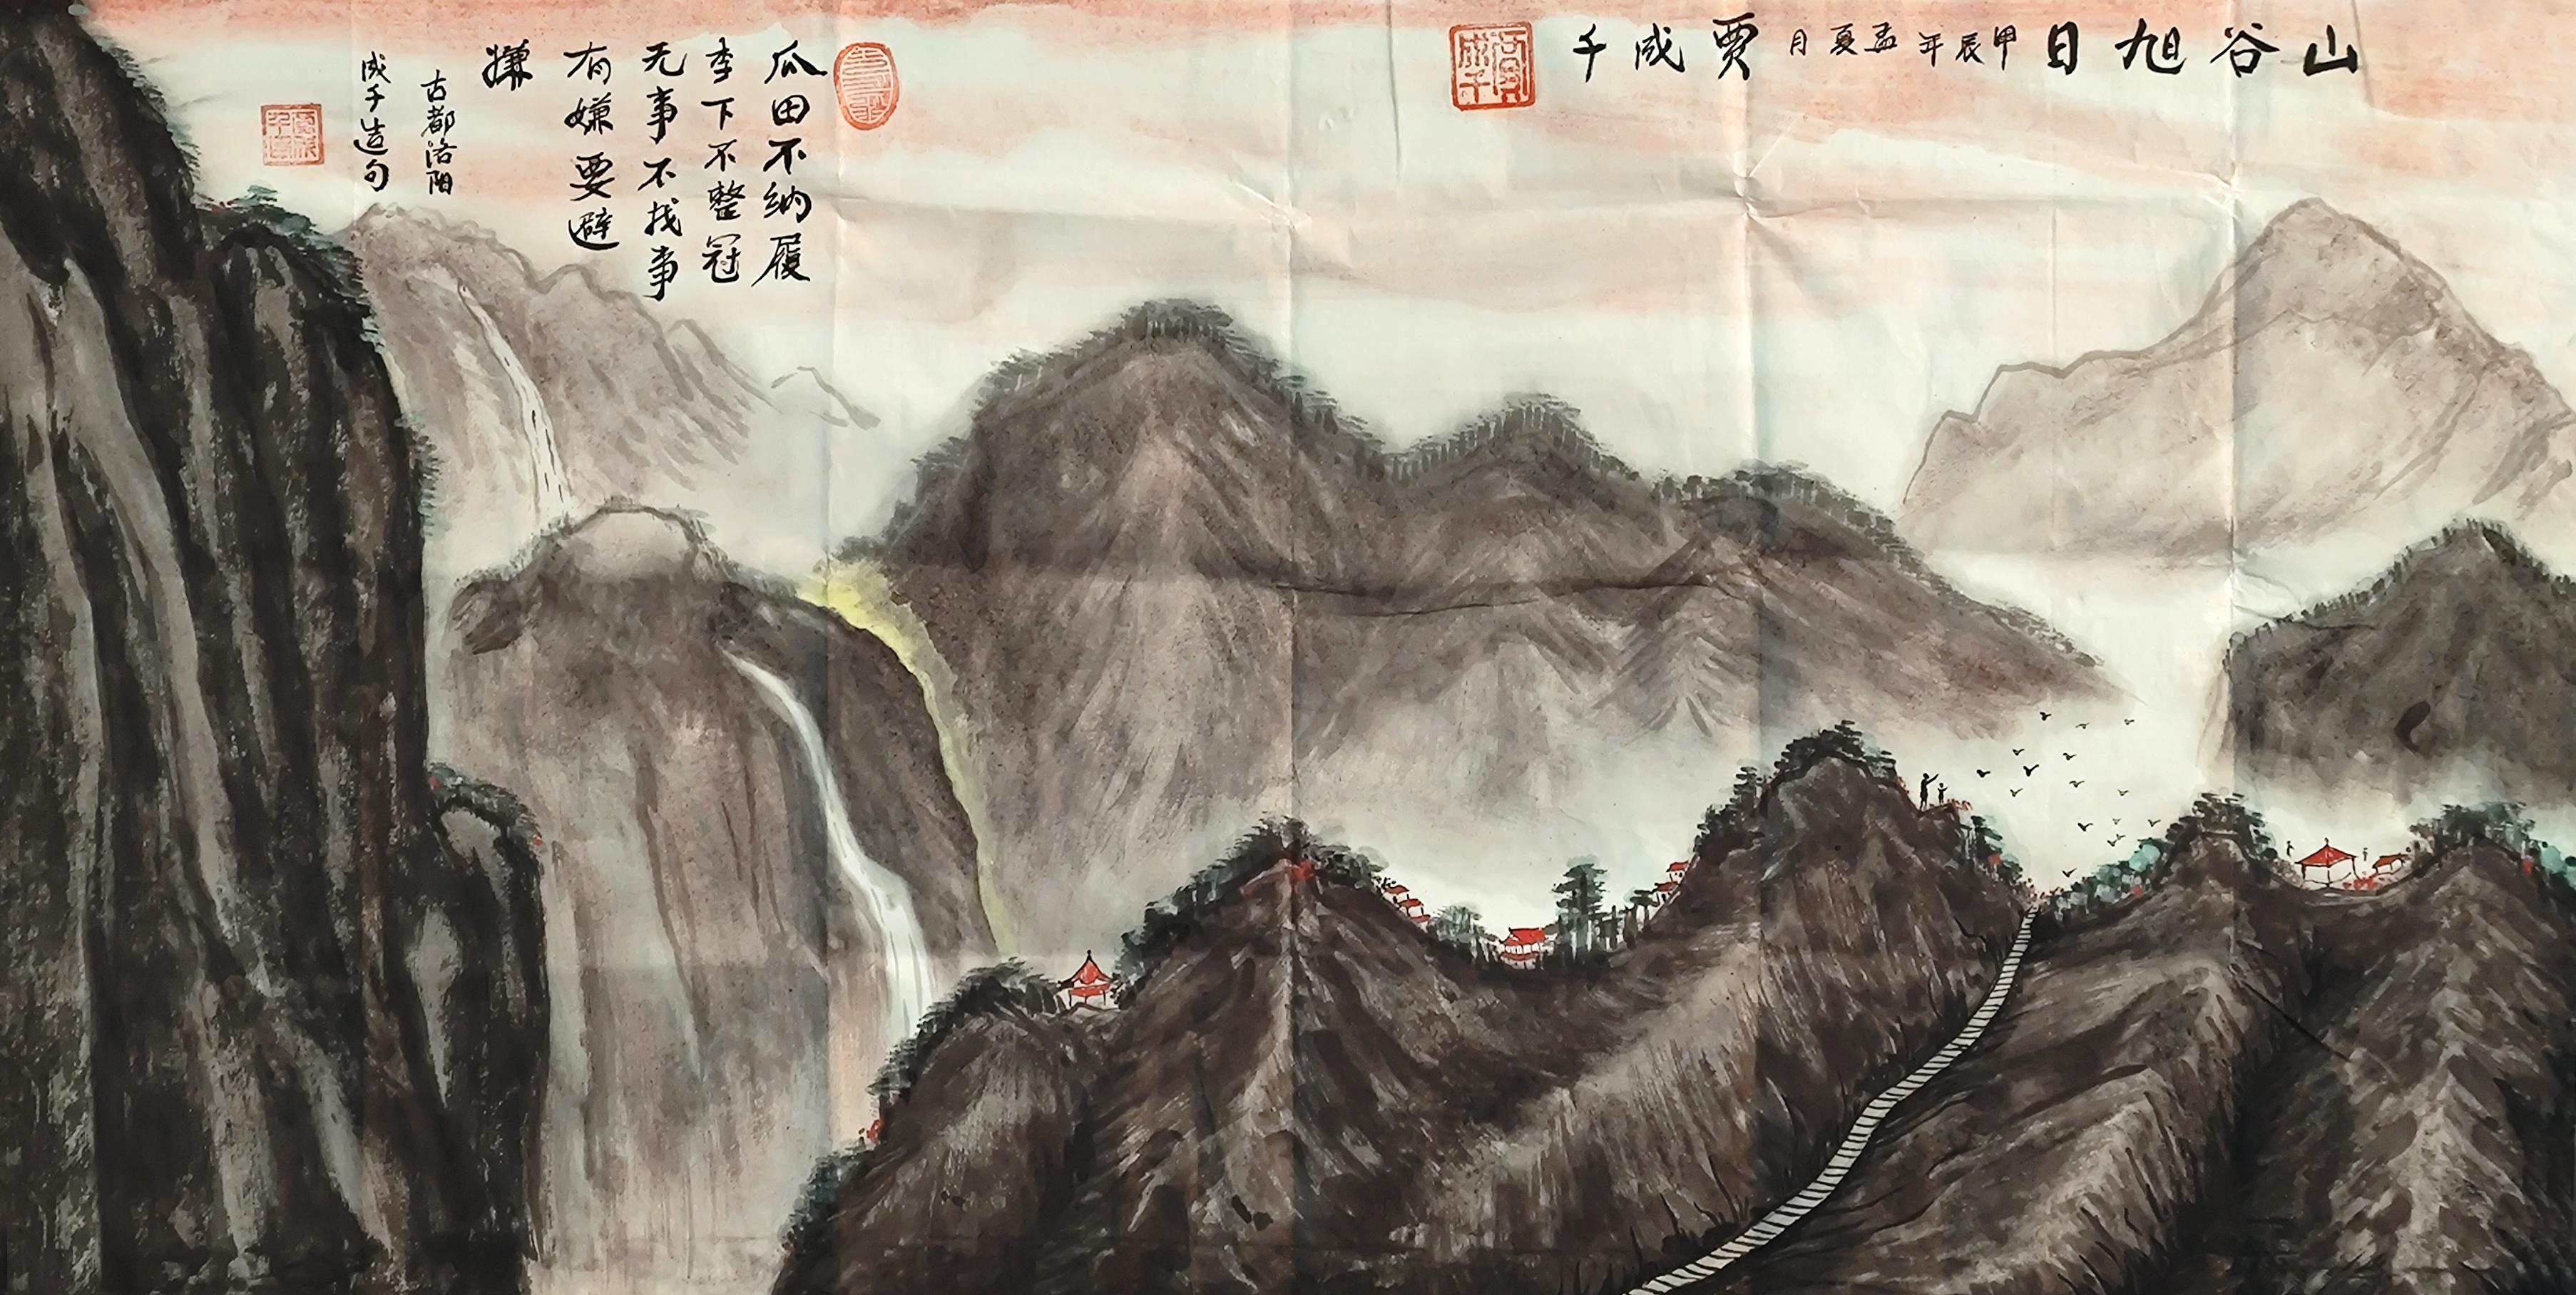 山谷旭日 甲辰年孟夏月 贾成千
瓜田不纳履
李下不整冠
无事不找事
有嫌要避
嫌
古都洛阳
成千造句